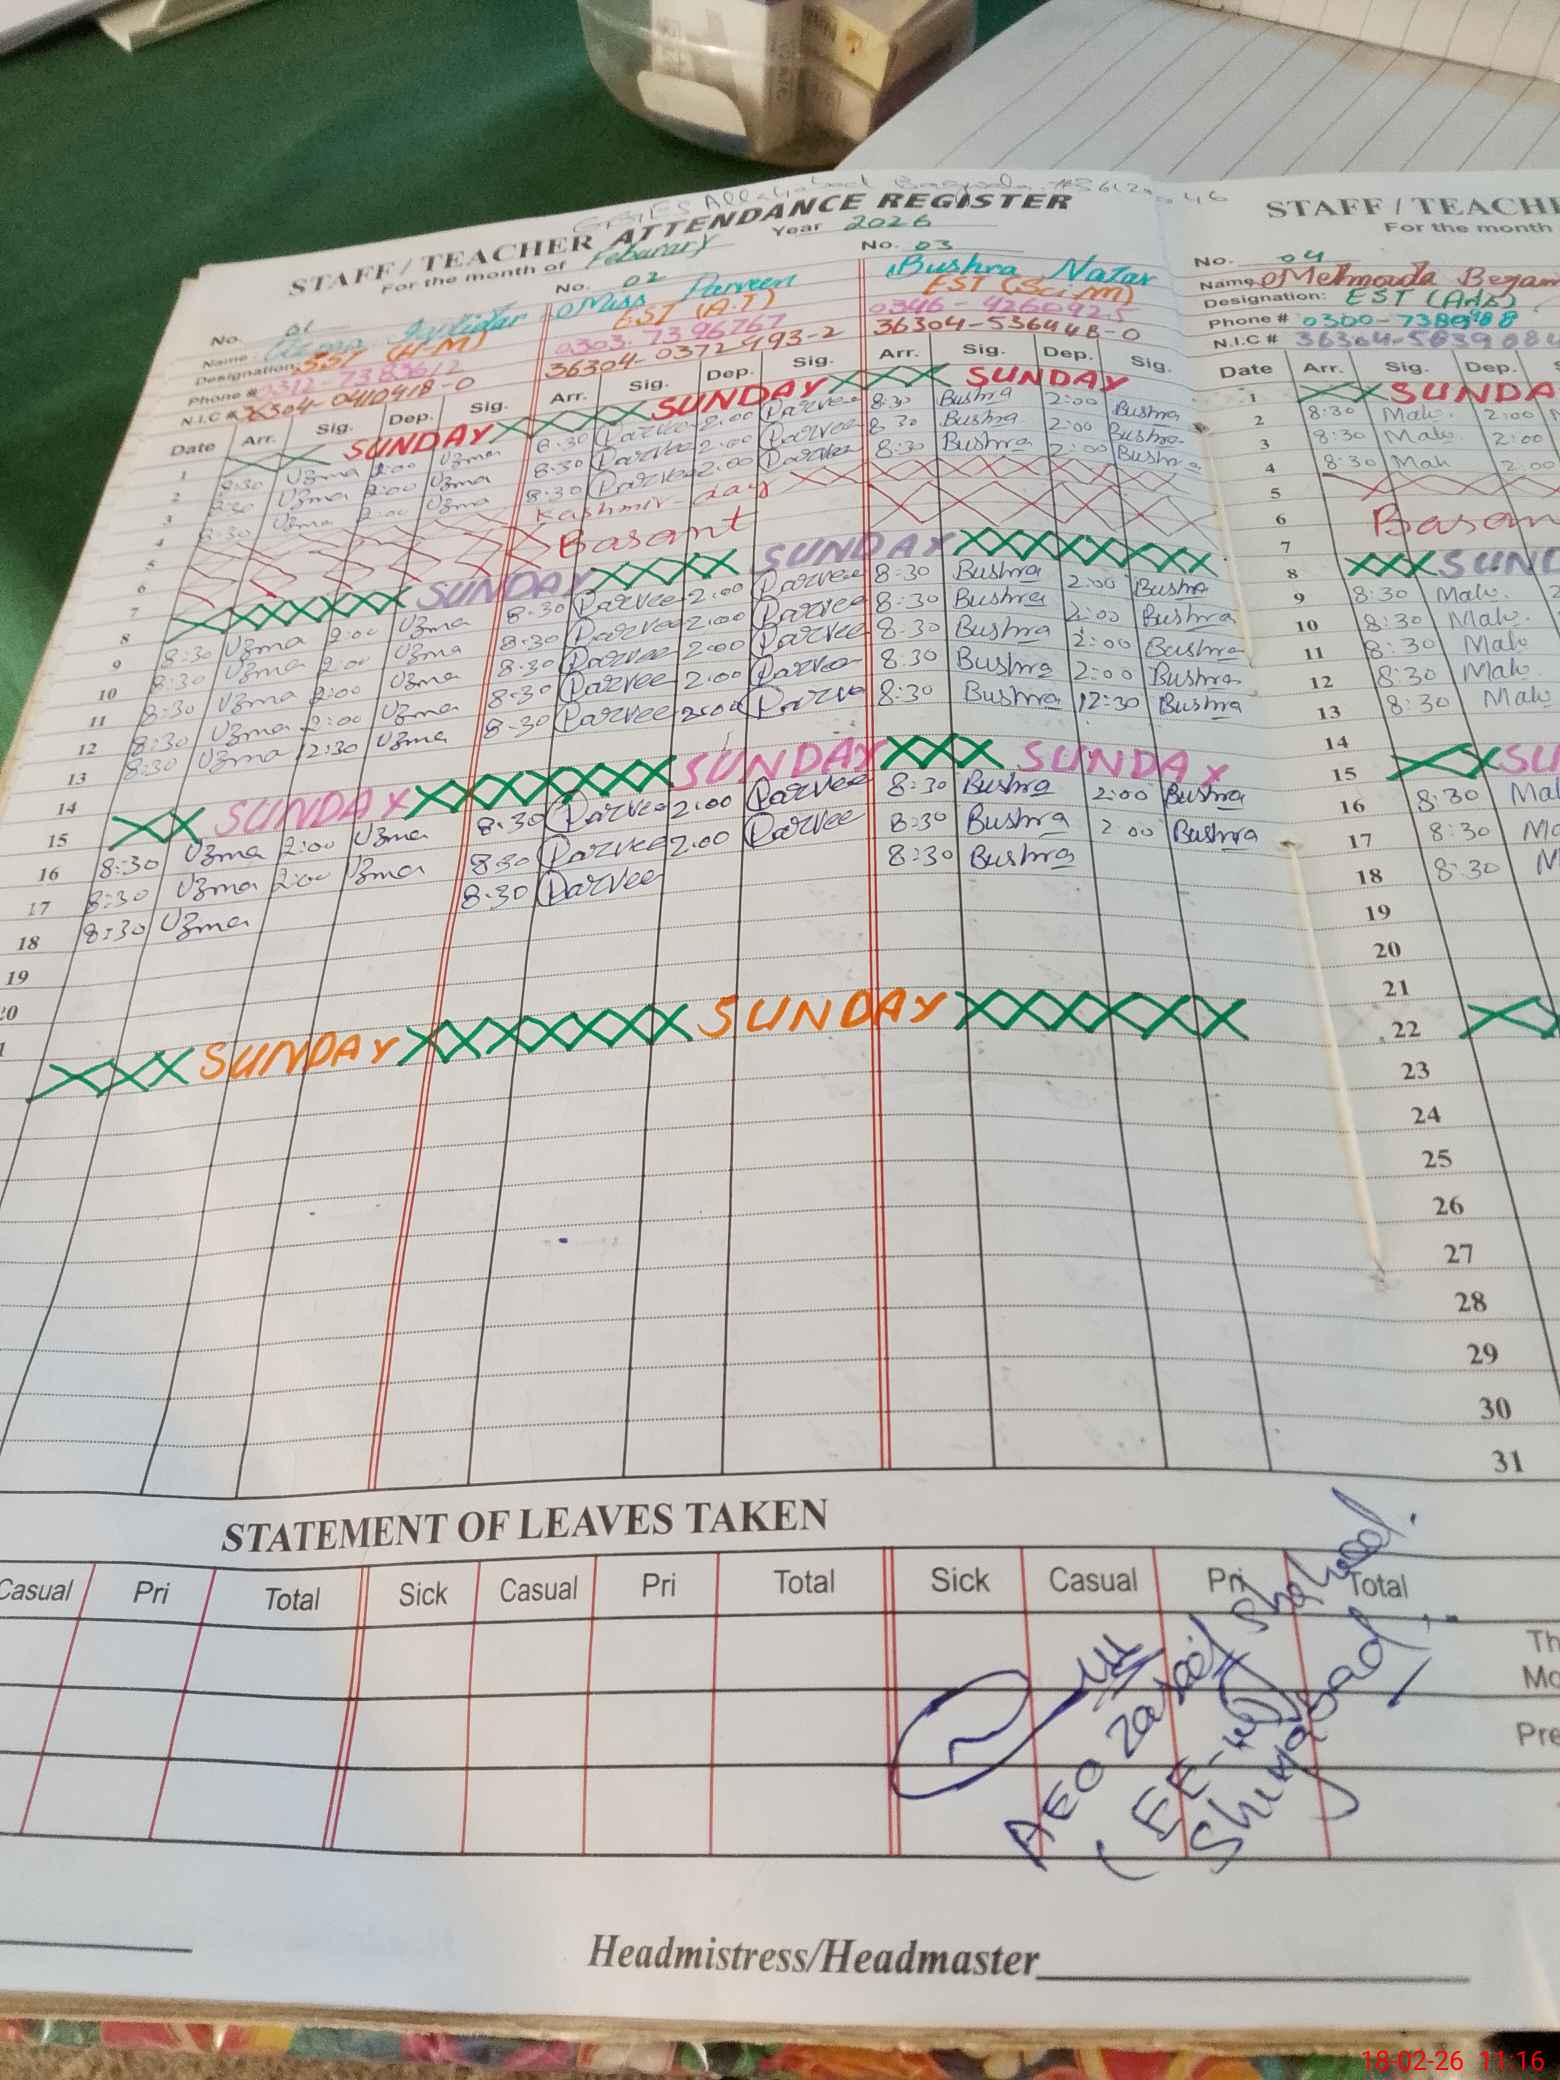 STAFF / TEACHER ATTENDANCE REGISTER
For the month of Feburary Year 2026
No. 01
Name: Iftikhar
Designation: SST (H-M)
Phone # 0312-7383612
N.I.C #
No. 02
Miss Parveen
EST (A.T)
0303-7396767
36304-0372993-2
No. 03
Bushra Nazar
EST (Sci.M)
0346-4260925
36304-5364448-0
Date Arr. Sig. Dep. Sig. Arr. Sig. Dep. Sig. Arr. Sig. Dep. Sig.
1 SUNDAY SUNDAY SUNDAY
2 8:30 Uzma 2:00 Uzma 8:30 Parvee 2:00 Parvee 8:30 Bushra 2:00 Bushra
3 8:30 Uzma 2:00 Uzma 8:30 Parvee 2:00 Parvee 8:30 Bushra 2:00 Bushra
4 8:30 Uzma 2:00 Uzma 8:30 Parvee 2:00 Parvee 8:30 Bushra 2:00 Bushra
5 Kashmir-day
6 Basant
7
8 SUNDAY SUNDAY
9 8:30 Uzma 2:00 Uzma 8:30 Parvee 2:00 Parvee 8:30 Bushra 2:00 Bushra
10 8:30 Uzma 2:00 Uzma 8:30 Parvee 2:00 Parvee 8:30 Bushra 2:00 Bushra
11 8:30 Uzma 2:00 Uzma 8:30 Parvee 2:00 Parvee 8:30 Bushra 2:00 Bushra
12 8:30 Uzma 2:00 Uzma 8:30 Parvee 2:00 Parvee 8:30 Bushra 2:00 Bushra
13 8:30 Uzma 12:30 Uzma 8:30 Parvee Parve 8:30 Bushra 12:30 Bushra
14
15 SUNDAY SUNDAY SUNDAY
16 8:30 Uzma 2:00 Uzma 8:30 Parvee 2:00 Parvee 8:30 Bushra 2:00 Bushra
17 8:30 Uzma 2:00 Uzma 8:30 Parvee 2:00 Parvee 8:30 Bushra 2:00 Bushra
18 8:30 Uzma 8:30 Parvee 8:30 Bushra
19
SUNDAY SUNDAY
STATEMENT OF LEAVES TAKEN
Casual Pri Total Sick Casual Pri Total Sick Casual Pri Total
AEO Shahid
Headmistress/Headmaster
STAFF / TEACHE
For the month
No. 04
Name: Mehmooda Begam
Designation: EST (Arts)
Phone #
N.I.C #
Date Arr. Sig. Dep.
1 SUNDA
2 8:30 Mah. 2:00
3 8:30 Mah. 2:00
4 8:30 Mah 2:00
5
6 Basan
7
8 SUND
9 8:30 Mah.
10 8:30 Mah.
11 8:30 Mah.
12 8:30 Mah.
13 8:30 Mah
14
15 SU
16 8:30 Mal
17 8:30
18 8:30
19
20
21
22
23
24
25
26
27
28
29
30
31
Th
Mo
Pre
18-02-26 11:16